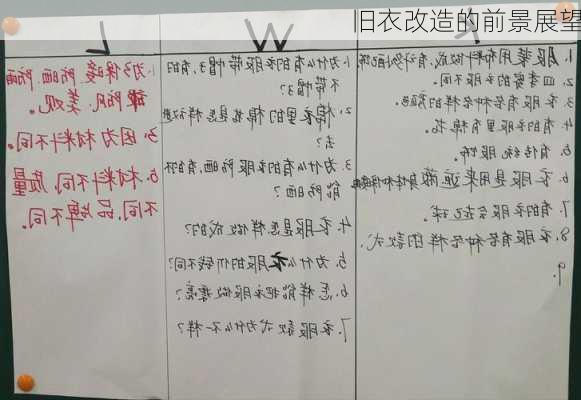 旧衣改造的前景展望
K
1. 服装用布料做成,有许多配饰
2. 四季穿的衣服不同。
3. 衣服有各种各样的颜色
4. 有的衣服里有棉花
5. 有传统服饰
6. 衣服是用来遮蔽身体和保暖
7. 有的衣服会起球。
8. 衣服有各种各样的款式.
9.
W
1. 为什么有的衣服带帽子,有的
不带帽子?
2. 棉衣里的棉花是怎样放进
去?
3. 为什么有的衣服防晒,有的不
能防晒?
4. 衣服是怎样做成的?
5. 为什么衣服的价钱不同?
6. 怎样能把衣服做漂亮?
7. 衣服款式为什么不一样?
L
1. 为了保暖、防晒、防雨
防风、美观。
3. 因为材料不同。
5. 材料不同,质量
不同,品牌不同。